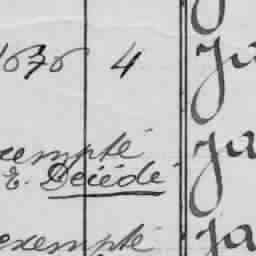 1636 4 Ja
exempté
E. Décédé ja
exempté ja